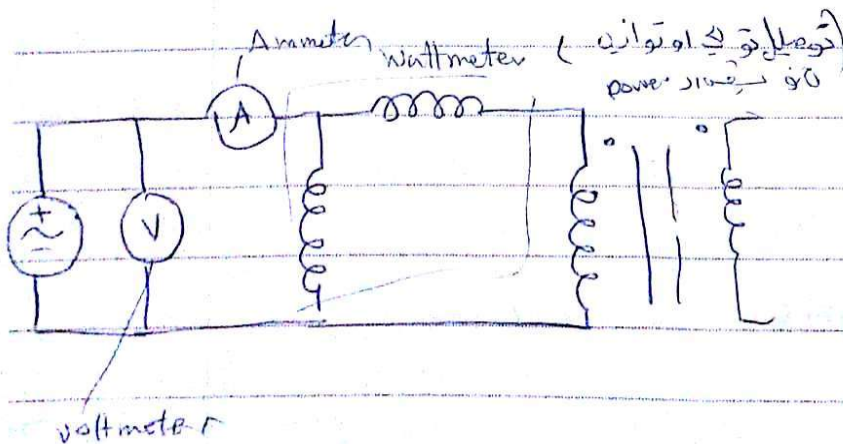 Ammeter
wattmeter (توصيل توالي او توازي)
power
A
V
voltmeter